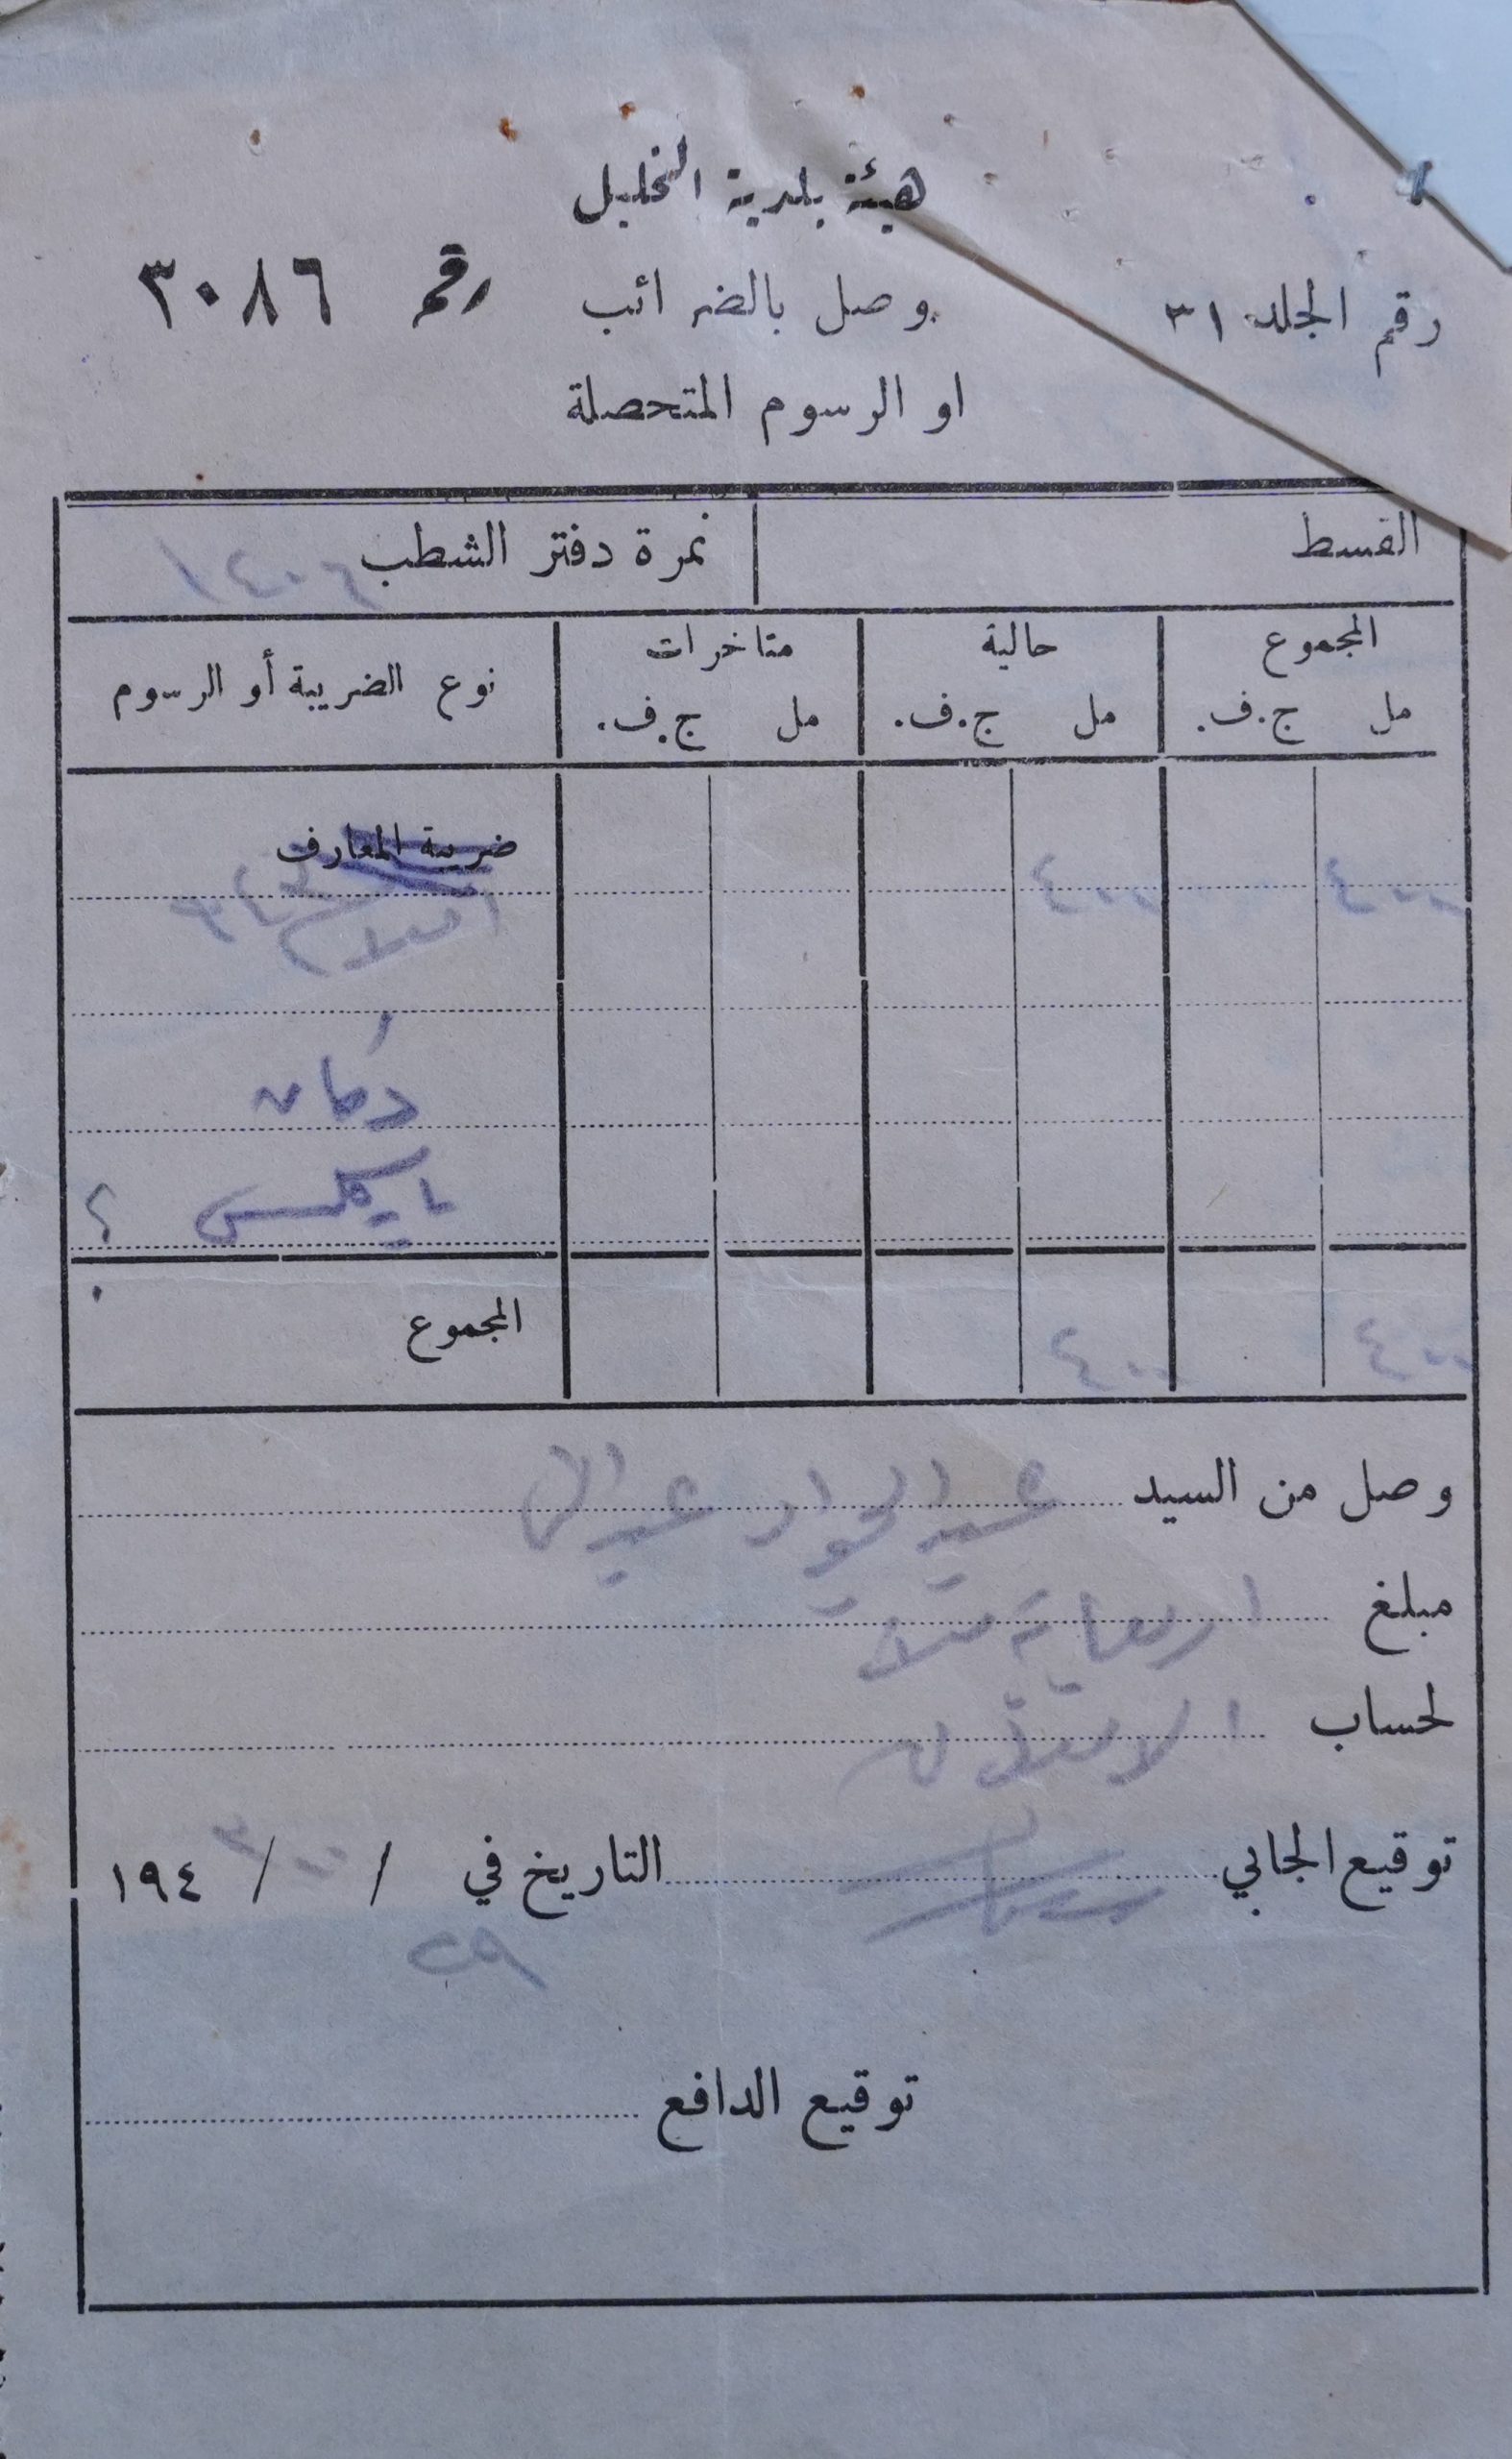 هيئة بلدية الخليل
رقم الجلد ٣١
وصل بالضرائب
رقم ٣٠٨٦
او الرسوم المتحصلة
القسط
نمرة دفتر الشطب ١٤٠٦
المجموع حالية متاخرات نوع الضريبة أو الرسوم
مل ج.ف. مل ج.ف. مل ج.ف.
ضريبة المعارف
٤٠٠ ٤٠٠
دكان
بايكلس
المجموع
٤٠٠ ٤٠٠
وصل من السيد عبد الجواد عبد
مبلغ اربعماية ملا
لحساب
توقيع الجابي التاريخ في / / ١٩٤٣
٢٩
توقيع الدافع